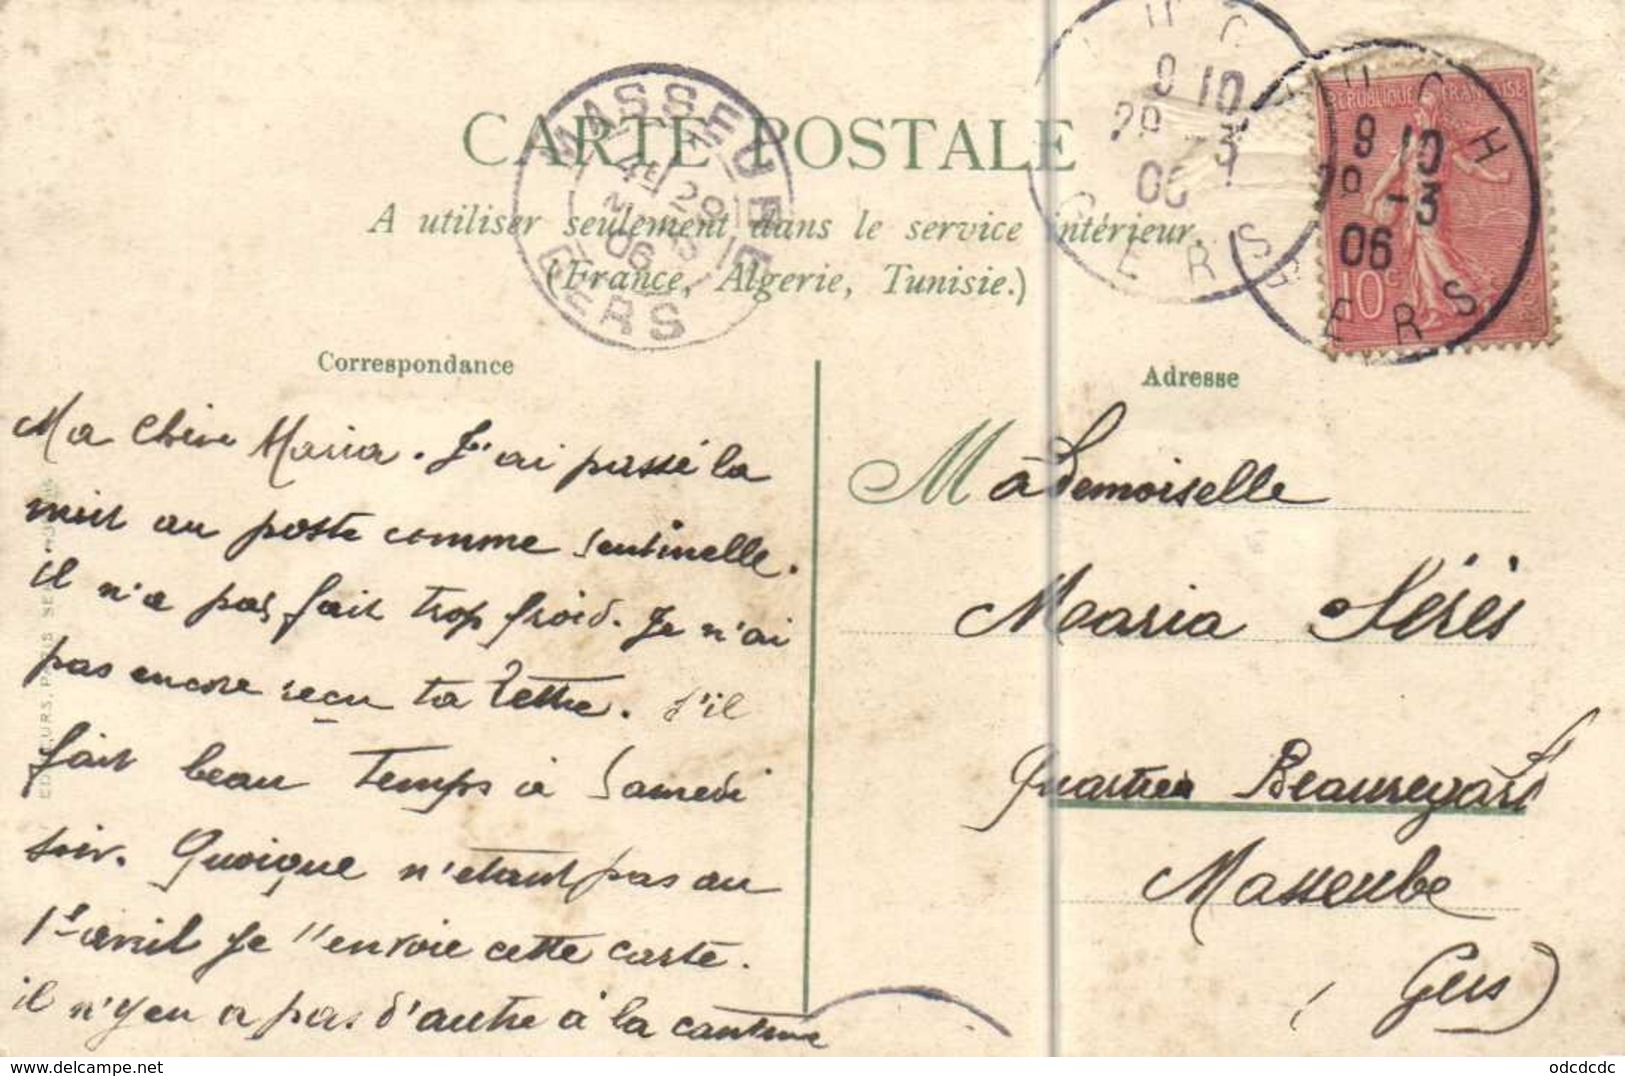 CARTE POSTALE
A utiliser seulement dans le service intérieur.
(France, Algerie, Tunisie.)
MASSEUBE
4E 29
06
GERS
AUCH
8 10
29 -3
06
GERS
AUCH
8 10
29 -3
06
GERS
REPUBLIQUE FRANÇAISE
10c
Correspondance
Ma Chère Maria. J'ai passé la
nuit au poste comme sentinelle.
il n'a pas fait trop froid. Je n'ai
pas encore reçu ta lettre. S'il
fait beau temps à Samedi
soir. Quoique n'étant pas au
1er avril je t'envoie cette carte.
il n'y en a pas d'autre à la cantine
Adresse
Mademoiselle
Maria Sérès
Quartier Beauregard
Masseube
(Gers)
EDITEURS, PARIS
delcampe.net
odcdcdc